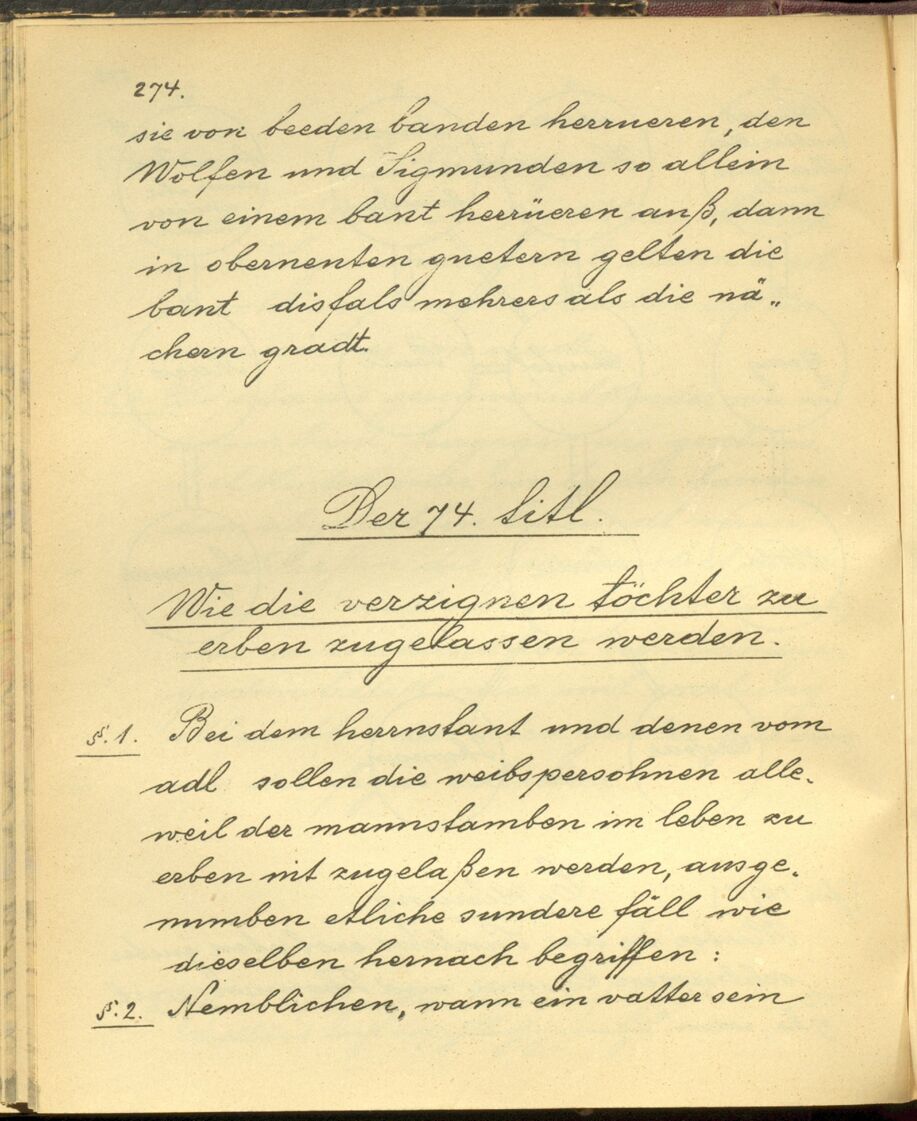 274.
sie von beeden banden herrueren, den
Wolfen und Sigmunden so allein
von einem bant herrüeren auß, dann
in obernenten guetern gelten die
bant disfals mehrers als die nä„
chern gradt.
Der 74. titl.
Wie die verzignen töchter zu
erben zugelassen werden.
§.1. Bei dem herrnstant und denen vom
adl sollen die weibspersohnen alle„
weil der mannstamben im leben zu
erben nit zugelaßen werden, ausge„
numben etliche sundere fäll wie
dieselben hernach begriffen:
§.2. Nemblichen, wann ein vatter sein